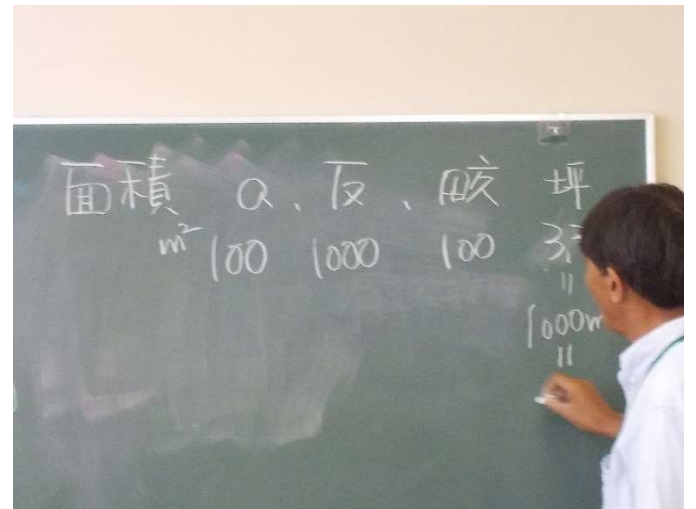 面積 a、反、畝 坪
m² 100 1000 100 3
=
1000m
=